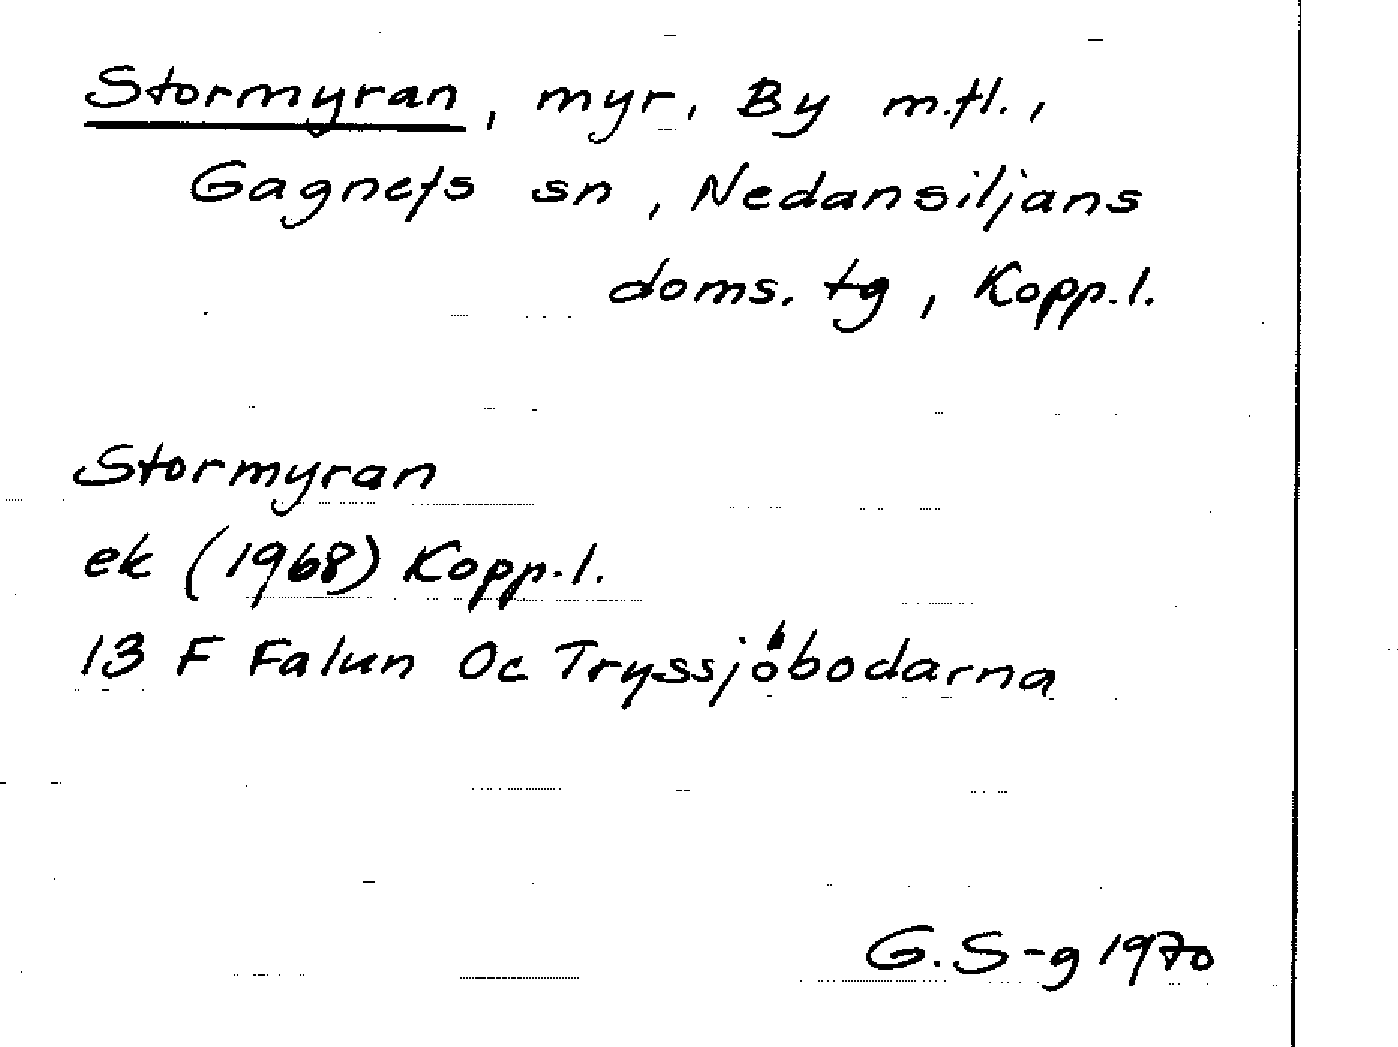 Stormyran, myr, By m.fl.,
Gagnefs sn, Nedansiljans
doms. tg, Kopp.l.
Stormyran
ek (1968) Kopp.l.
13 F Falun 0c Tryssjöbodarna
G.S-g 1970